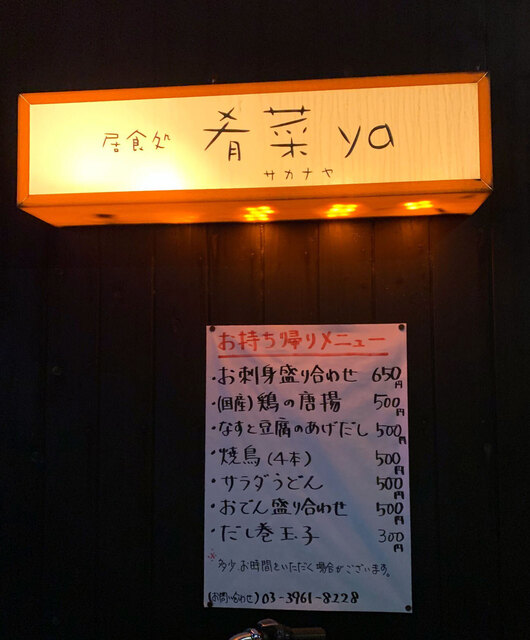 居食処 肴菜 ya
サカナヤ
お持ち帰りメニュー
・お刺身盛り合わせ 650円
・(国産)鶏の唐揚 500円
・なすと豆腐のあげだし 500円
・焼鳥(4本) 500円
・サラダうどん 500円
・おでん盛り合わせ 500円
・だし巻玉子 300円
※多少、お時間をいただく場合がございます。
(お問い合わせ) 03-3961-8228